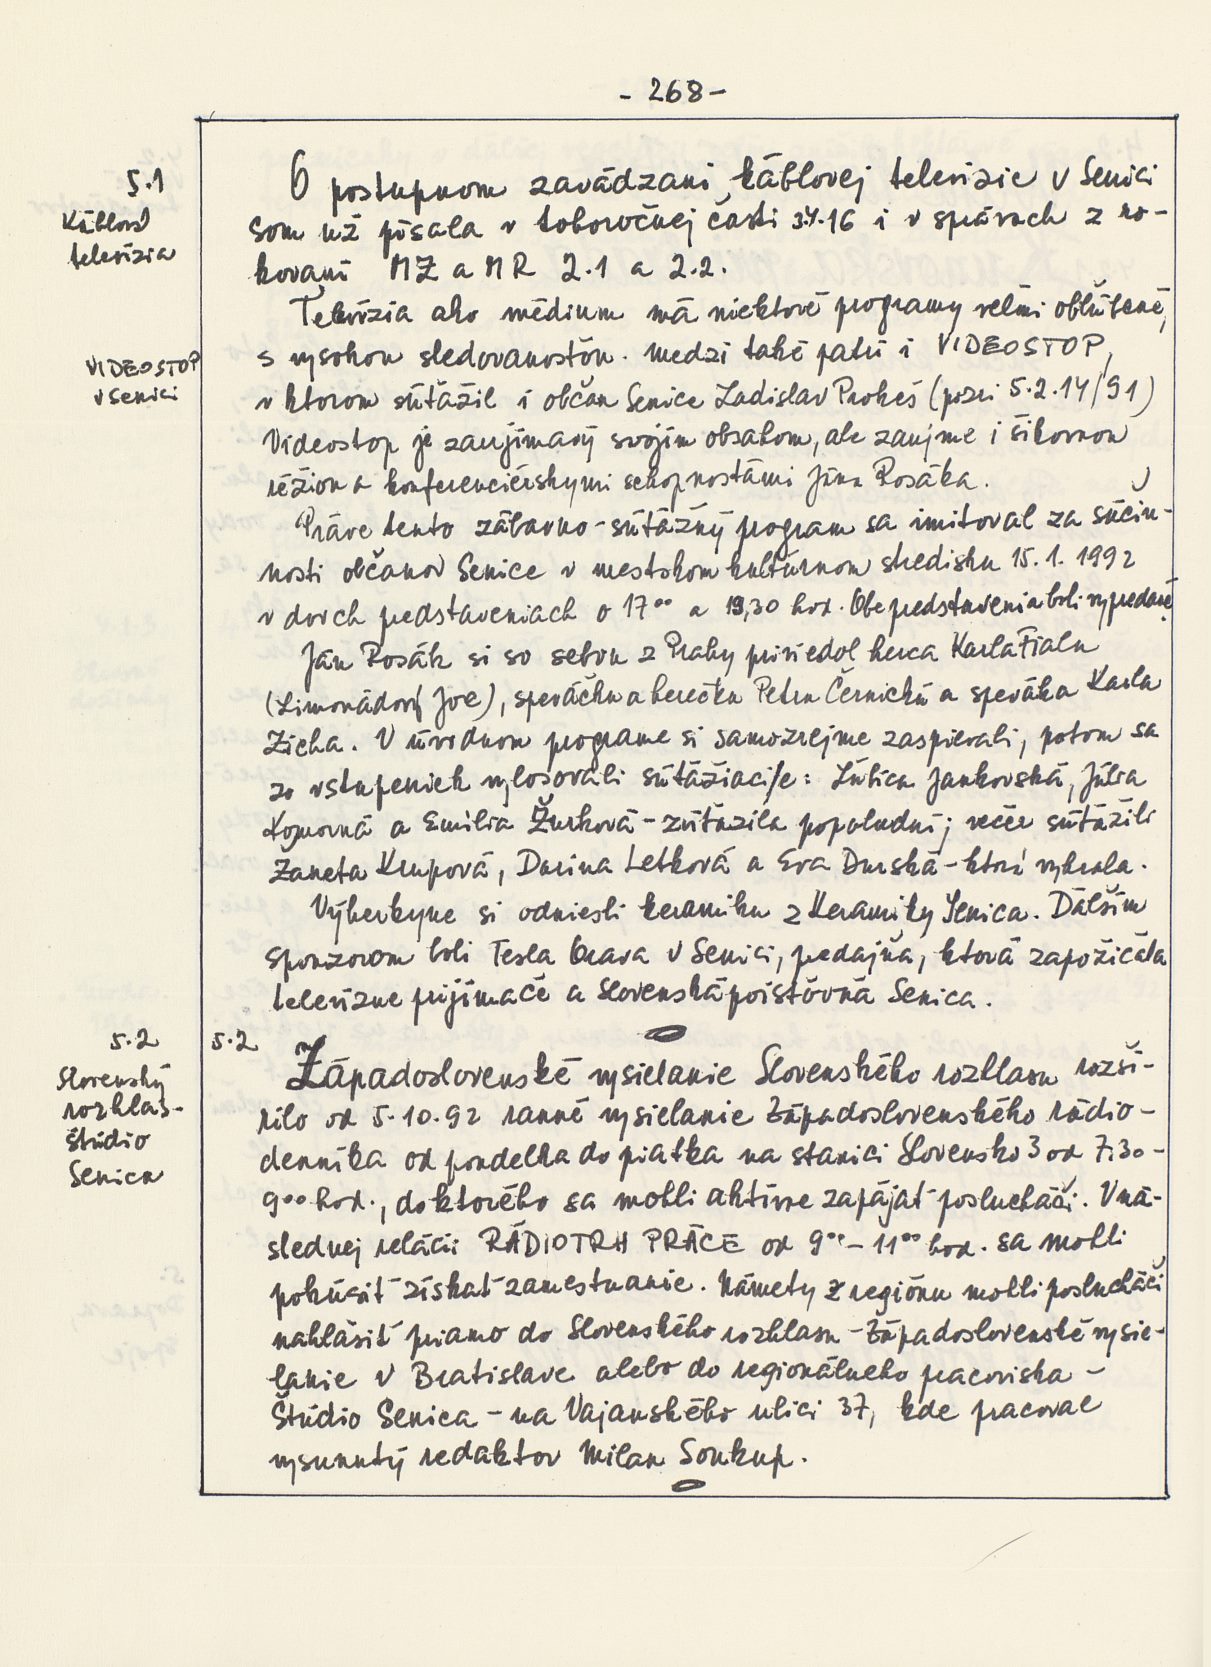 - 268 -
5.1
Káblová
televízia
O postupnom zavádzaní káblovej televízie v Senici
som už písala v tohoročnej časti 3.4.16 i v správach z ro-
kovaní MZ a MR 2.1 a 2.2.
Televízia ako médium má niektoré programy veľmi obľúbené,
VIDEOSTOP
v Senici
s vysokou sledovanosťou. Medzi také patrí i VIDEOSTOP,
v ktorom súťažil i občan Senice Ladislav Prokeš (pozri 5.2.14/91)
Videostop je zaujímavý svojím obsahom, ale zaujme i šikovnou
réžiou a konferenciérskymi schopnosťami Jána Rosáka.
Práve tento zábavno-súťažný program sa imitoval za súčin-
nosti občanov Senice v mestskom kultúrnom stredisku 15.1.1992
v dvoch predstaveniach o 17°° a 19,30 hod. Obe predstavenia boli vypredané.
Ján Rosák si so sebou z Prahy priviedol herca Karla Fialu
(Limonádový Joe), speváčku a herečku Petru Černickú a speváka Karla
Zicha. V úvodnom programe si samozrejme zaspievali, potom sa
zo vstupeniek vylosovali súťažiaci/e: Ľubica Jankovská, Júlia
Komorná a Emília Žurková - zvíťazila popoludní; večer súťažili
Žaneta Krupová, Darina Letková a Eva Durská - ktorá vyhrala.
Výherkyne si odniesli keramiku z Keramiky Senica. Ďalším
sponzorom boli Tesla Orava v Senici, predajňa, ktorá zapožičala
televízne prijímače a Slovenská poisťovňa Senica.
5.2
Slovenský
rozhlas -
štúdio
Senica
5.2
Západoslovenské vysielanie Slovenského rozhlasu rozší-
rilo od 5.10.92 ranné vysielanie Západoslovenského rádio-
denníka od pondelka do piatka na stanici Slovensko 3 od 7.30 -
9°° hod., do ktorého sa mohli aktívne zapájať poslucháči. V ná-
slednej relácii RÁDIOTRH PRÁCE od 9°° - 11°° hod. sa mohli
pokúsiť získať zamestnanie. Námety z regiónu mohli poslucháči
nahlásiť priamo do Slovenského rozhlasu - Západoslovenské vysie-
lanie v Bratislave alebo do regionálneho pracoviska -
Štúdio Senica - na Vajanského ulici 37, kde pracoval
vysunutý redaktor Milan Soukup.